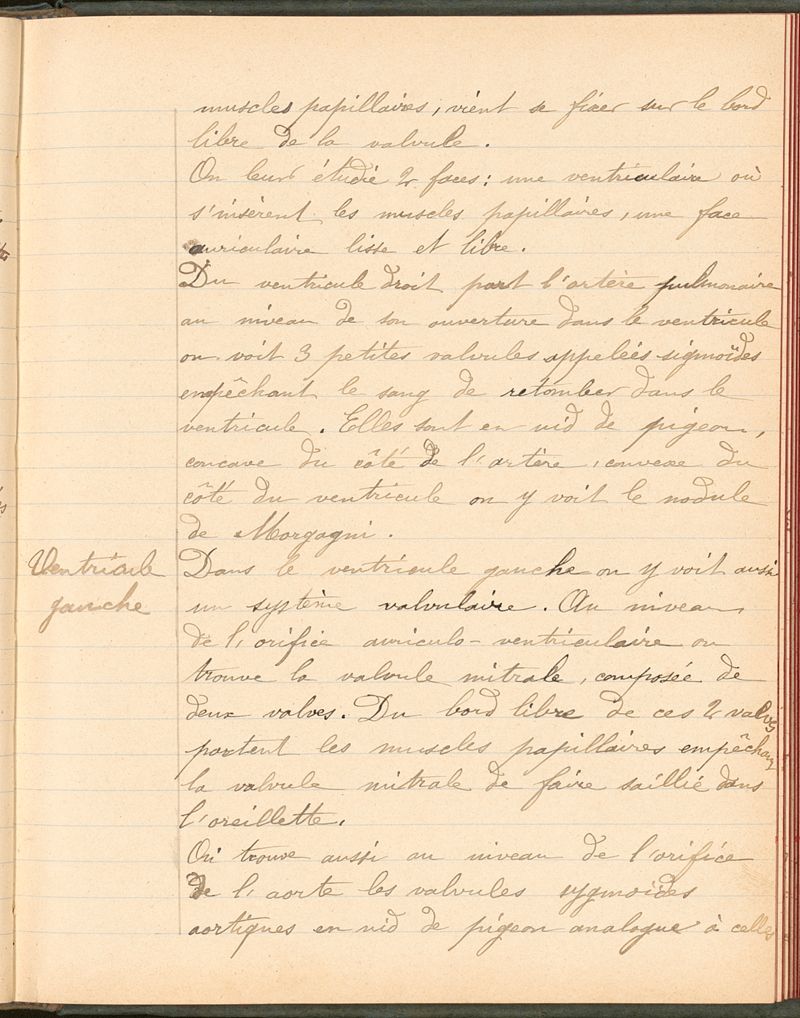 muscles papillaires, vient se fixer sur le bord
libre de la valvule.
On leur étudie 2 faces : une ventriculaire où
s'insèrent les muscles papillaires, une face
auriculaire lisse et libre.
Du ventricule droit part l'artère pulmonaire
au niveau de son ouverture dans le ventricule
on voit 3 petites valvules appelées sigmoïdes
empêchant le sang de retomber dans le
ventricule. Elles sont en nid de pigeon,
concave du côté de l'artère, convexe du
côté du ventricule on y voit le nodule
de Morgagni.
Ventricule
gauche
Dans le ventricule gauche on y voit aussi
un système valvulaire. Au niveau
de l'orifice auriculo-ventriculaire on
trouve la valvule mitrale, composée de
deux valves. Du bord libre de ces 2 valves
partent les muscles papillaires empêchant
la valvule mitrale de faire saillie dans
l'oreillette.
On trouve aussi au niveau de l'orifice
de l'aorte les valvules sygmoïdes
aortiques en nid de pigeon analogue à celles